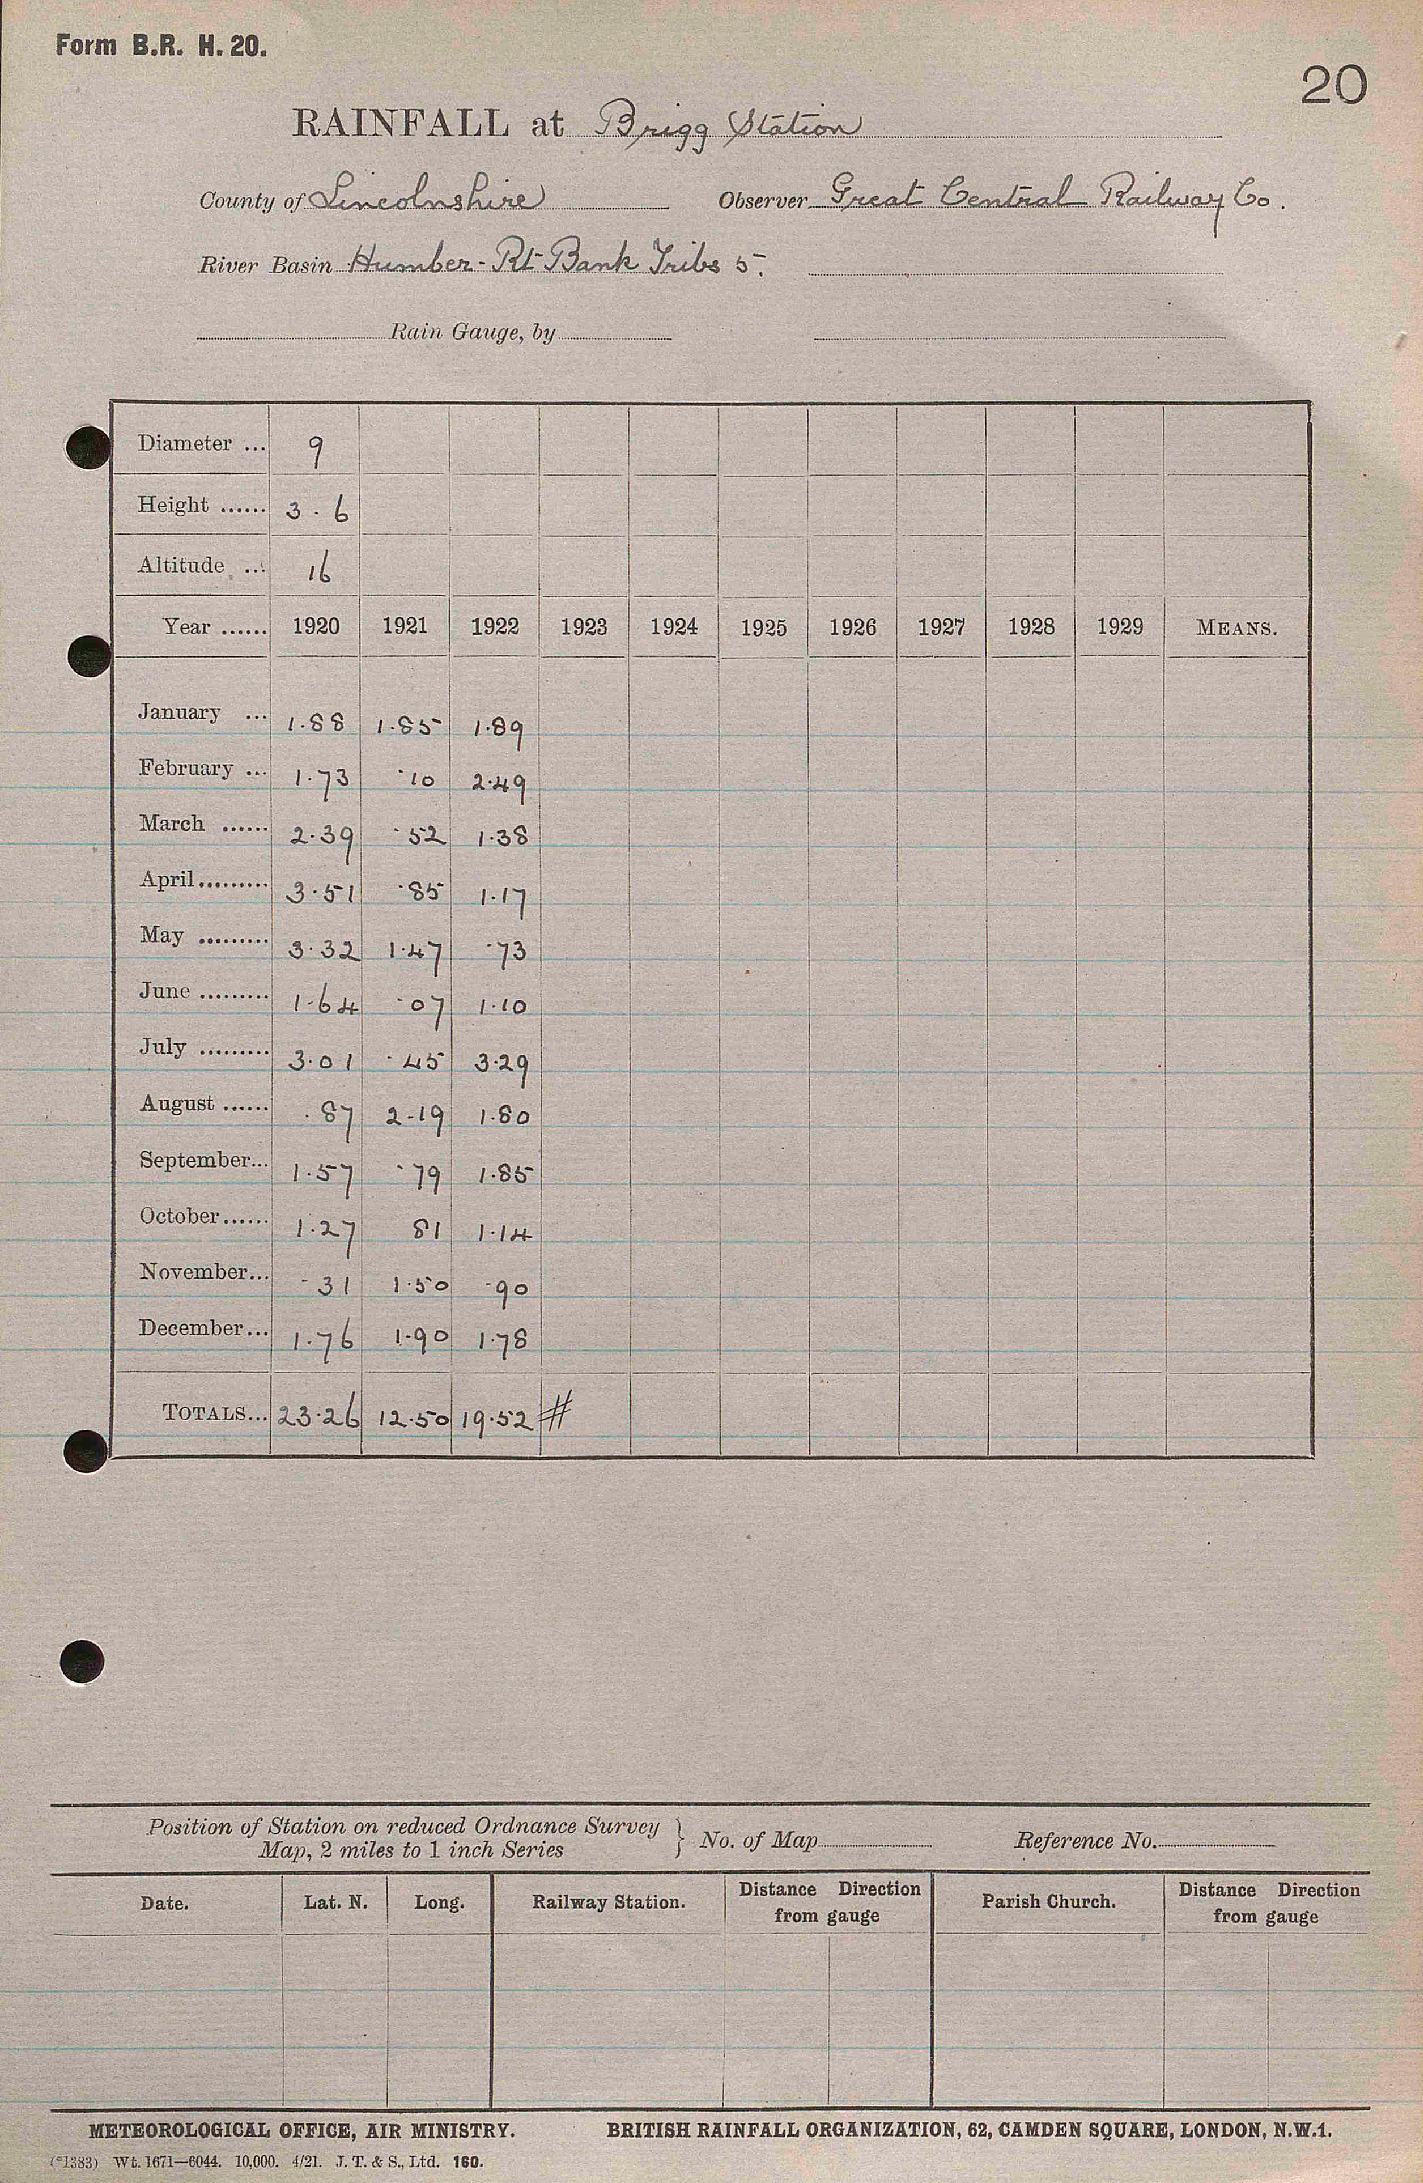 Form B.R. H. 20.
20
RAINFALL at Brigg Station
County of Lincolnshire Observer Great Central Railway Co.
River Basin Humber - Rt Bank Tribs 5.
Rain Gauge, by
Diameter ... 9
Height ...... 3 . 6
Altitude ... 16
Year ...... 1920 1921 1922 1923 1924 1925 1926 1927 1928 1929 MEANS.
January ... 1.88 1.85 1.89
February ... 1.73 .10 2.49
March ...... 2.39 .52 1.38
April ......... 3.51 .85 1.17
May ......... 3.32 1.47 .73
June ......... 1.64 .07 1.10
July ......... 3.01 .45 3.29
August ...... .87 2.19 1.80
September... 1.57 .79 1.85
October...... 1.27 81 1.14
November... .31 1.50 .90
December... 1.76 1.90 1.78
TOTALS... 23.26 12.50 19.52 #
Position of Station on reduced Ordnance Survey
Map, 2 miles to 1 inch Series } No. of Map Reference No.
Date. Lat. N. Long. Railway Station. Distance Direction from gauge Parish Church. Distance Direction from gauge
METEOROLOGICAL OFFICE, AIR MINISTRY. BRITISH RAINFALL ORGANIZATION, 62, CAMDEN SQUARE, LONDON, N.W.1.
(*1383) Wt. 1671—6044. 10,000. 4/21. J. T. & S., Ltd. 160.